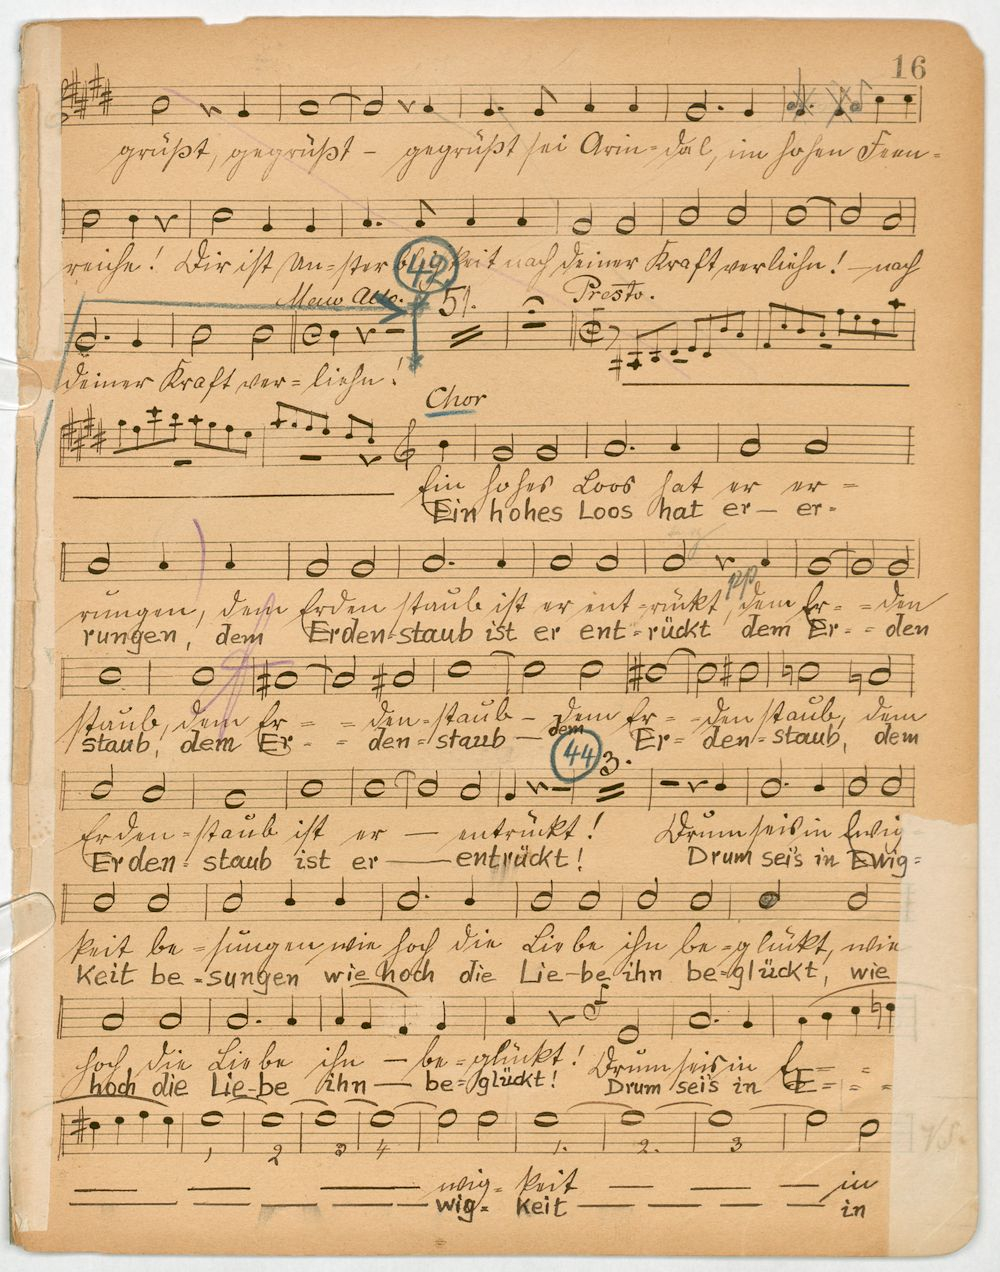 16
grüßt, gegrüßt – gegrüßt sei Arin-dal, im hohen Feen=
reiche! Dir ist Un-sterblichkeit nach deiner Kraft verliehn! – nach
42
Meno Allo. 51. Presto.
deiner Kraft ver= liehn!
Chor
Ein hohes Loos hat er er=
Ein hohes Loos hat er– er=
rungen, dem Erden staub ist er ent-rückt, dem Er= = den
pp
rungen, dem Erden=staub ist er ent=rückt dem Er= = den
staub, dem Er= = den=staub – dem Er= =den staub, dem
staub, dem Er- = den=staub — dem Er= den=staub, dem
44 3.
Erden=staub ist er — entrückt! Drum seis in Ewig
Erden=staub ist er — entrückt! Drum sei's in Ewig=
keit be=sungen wie hoch die Liebe ihn be=glückt, wie
Keit be=sungen wie hoch die Lie-be ihn be=glückt, wie
hoch die Liebe ihn — be=glückt! Drum seis in E= = =
hoch die Lie-be ihn — be=glückt! Drum sei's in E= = =
1 2 3 4 1. 2. 3 V.S.
wig= keit — — — in
wig= keit — — — in